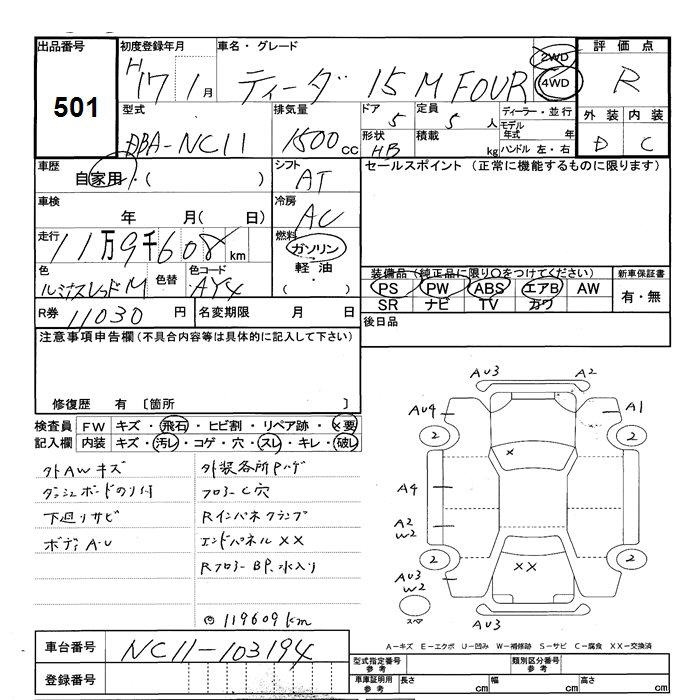 出品番号
501
初度登録年月
H17 1月
車名・グレード
ティーダ 15M FOUR
2WD
4WD
評価点
R
外装 内装
D C
型式
DBA-NC11
排気量
1500 cc
ドア
5
定員
5 人
形状
HB
積載
kg
ディーラー・並行
モデル
年式 年
ハンドル 左・右
車歴
自家用・( )
シフト
AT
セールスポイント (正常に機能するものに限ります)
車検
年 月( 日)
冷房
AC
走行
11万9千608 km
燃料
ガソリン
軽油
( ・ )
色
ルミナスレッドM
色替
色コード
AY4
装備品(純正品に限り○をつけてください)
PS PW ABS エアB AW
SR ナビ TV カワ
新車保証書
有・無
R券 11030 円
名変期限 月 日
後日品
注意事項申告欄(不具合内容等は具体的に記入して下さい)
修復歴 有 〔箇所 〕
検査員
記入欄
FW キズ・飛石・ヒビ割・リペア跡・×要
内装 キズ・汚レ・コゲ・穴・スレ・キレ・破レ
外AWキズ
ダッシュボードのり付
下廻りサビ
ボディA-U
外装各所Pハゲ
フロアーC穴
Rインパネクランプ
エンドパネルXX
RフロアーBP、水入り
◎119609km
AU3
A2
AU4
A1
2
2
×
A4
A2
W2
2
2
××
AU3
W2
スペア
AU3
A-キズ E-エクボ U-凹み W-補修跡 S-サビ C-腐食 XX-交換済
車台番号
NC11-103194
登録番号
型式指定番号
参考
類別区分番号
参考
車庫証明用
参考
長さ cm
幅 cm
高さ cm